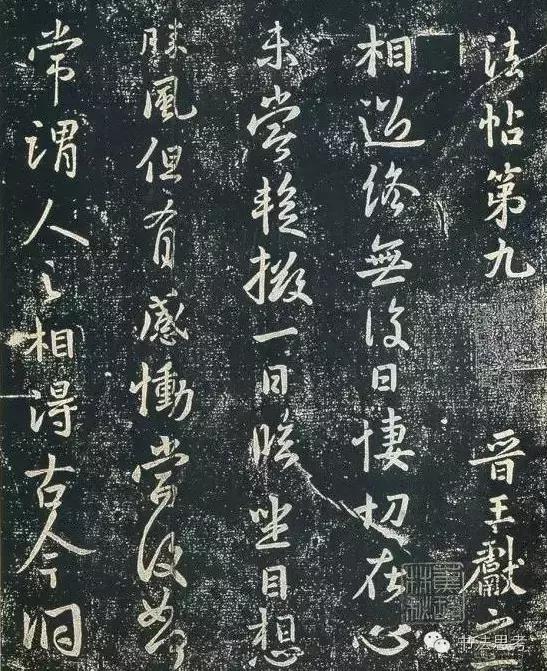 法帖第九 晋王獻之
相過終無復日悽切在心
未嘗暫撥一日臨坐目想
勝風但有感慟當復如何
常謂人之相得古今洞
书法思考